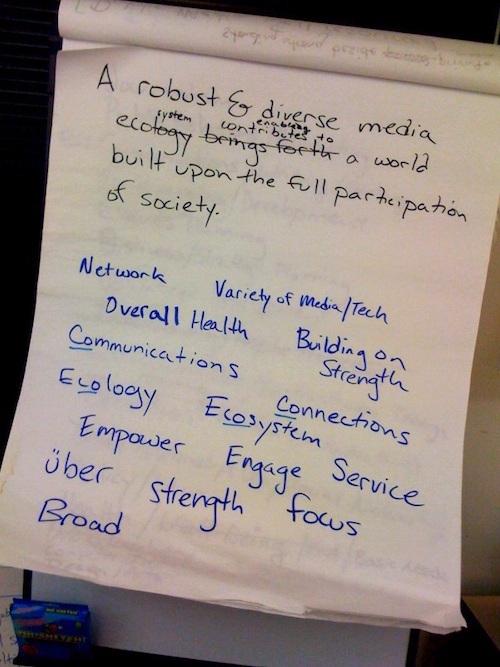 A robust & diverse media
system enabling
ecology brings forth contributes to a world
built upon the full participation
of society.
Network Variety of Media/Tech
Overall Health Building on
Strength
Communications
Ecology Ecosystem Connections
Empower Engage Service
über strength focus
Broad